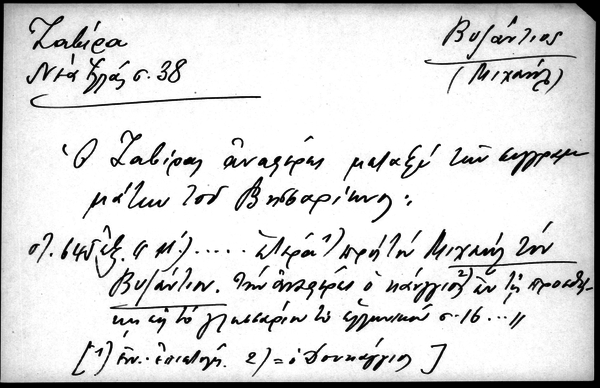 Ζαβίρα
Νέα Ἑλλάς σ. 38
Βυζάντιος
(Μιχαήλ)
Ὁ Ζαβίρας ἀναφέρει μεταξύ τῶν συγγραμ
μάτων τοῦ Βησσαρίωνος:
στ. ἑξ. ..... ἑτέρα 1) πρός τόν Μιχαήλ τόν
Βυζάντιον. τήν ἀναφέρει ὁ κάγγιος 2) ἐν τῇ προσθή-
κῃ εἰς τό γλωσσάριον τό ἑλληνικόν σ. 16 ... "
[ 1) ἐν. ἐπιστολή. 2) = ὁ Δουκάγγιος ]